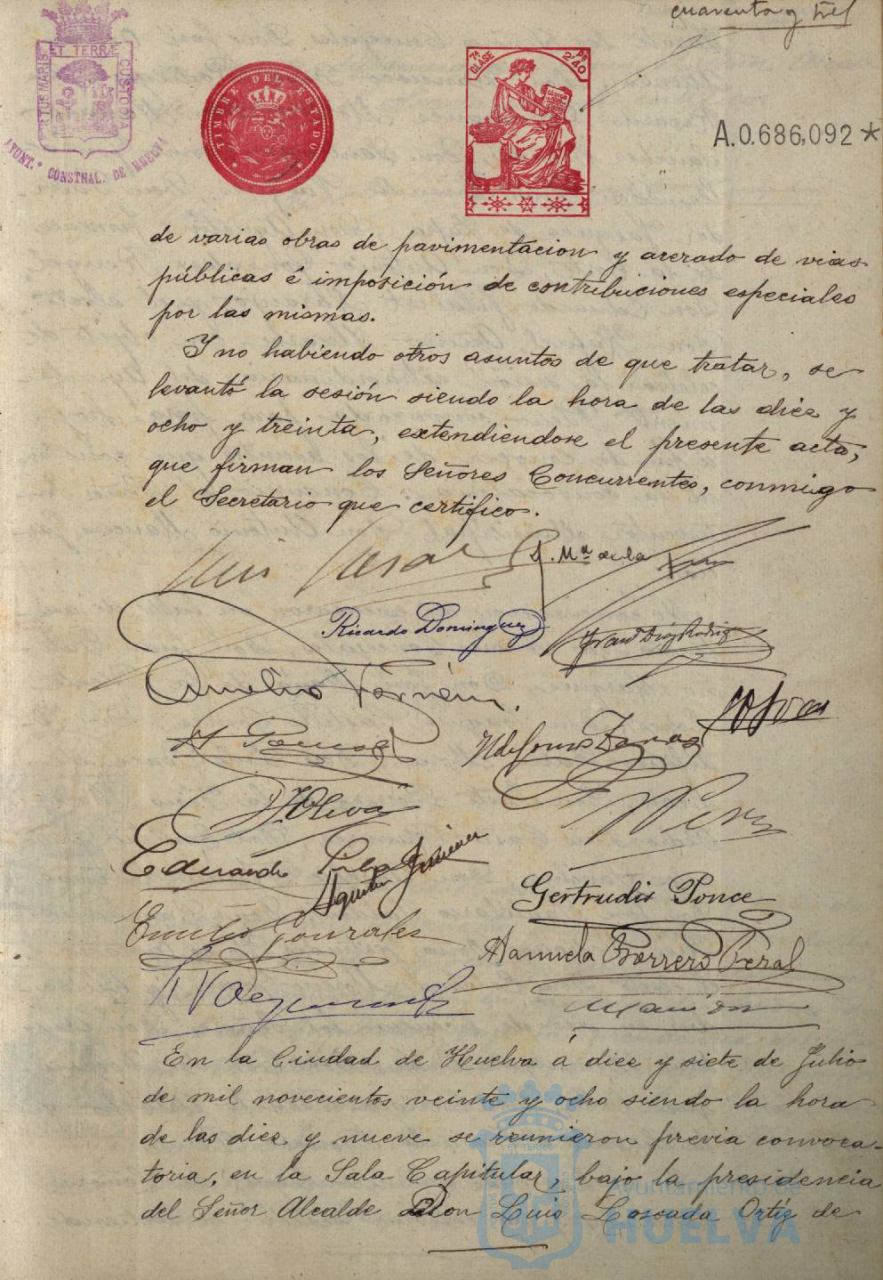 cuarenta y tres
ET TERRÆ
CUSTO
AYONT. CONSTNAL. DE HUELVA
TIMBRE DEL ESTADO
7ª CLASE
2'40
A.0.686,092*
de varias obras de pavimentacion y acerado de vias
públicas é imposición de contribuciones especiales
por las mismas.
Y no habiendo otros asuntos de que tratar, se
levantó la sesión siendo la hora de las diez y
ocho y treinta, extendiendose el presente acta,
que firman los Señores Concurrentes, conmigo
el Secretario que certifico.
Mª de la
Ricardo Dominguez
Aurelio
Ildefonso
Oliva
Eduardo
Agustín Jimenez
Gertrudis Ponce
Emilio Gonzales
Manuela Borrero Peral
En la Ciudad de Huelva á diez y siete de Julio
de mil novecientos veinte y ocho siendo la hora
de las diez y nueve se reunieron previa convoca-
toria, en la Sala Capitular, bajo la presidencia
del Señor Alcalde Don Luis Loscada Ortíz de
Ayuntamiento
HUELVA